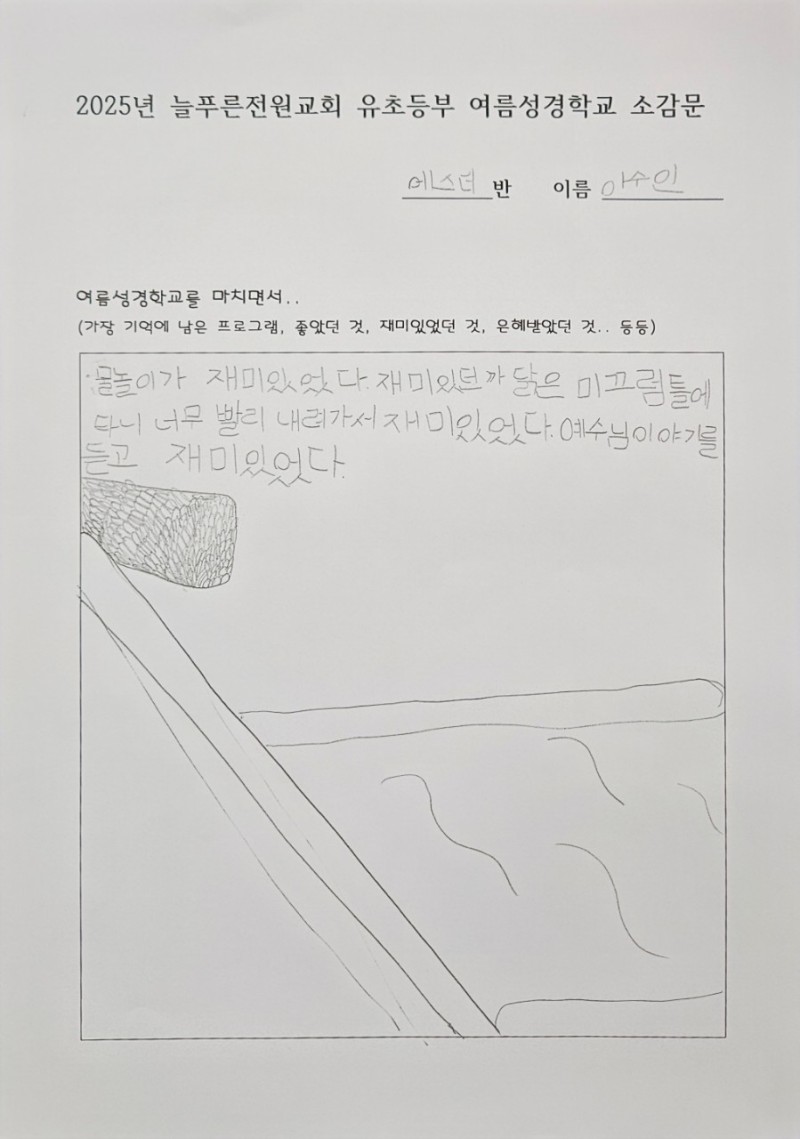 2025년 늘푸른전원교회 유초등부 여름성경학교 소감문
에스더 반 이름 이수인
여름성경학교를 마치면서..
(가장 기억에 남은 프로그램, 좋았던 것, 재미있었던 것, 은혜받았던 것.. 등등)
물놀이가 재미있었다. 재미있던 까 닭은 미끄럼틀에
타니 너무 빨리 내려가서 재미있었다. 예수님이야기를
듣고 재미있었다.